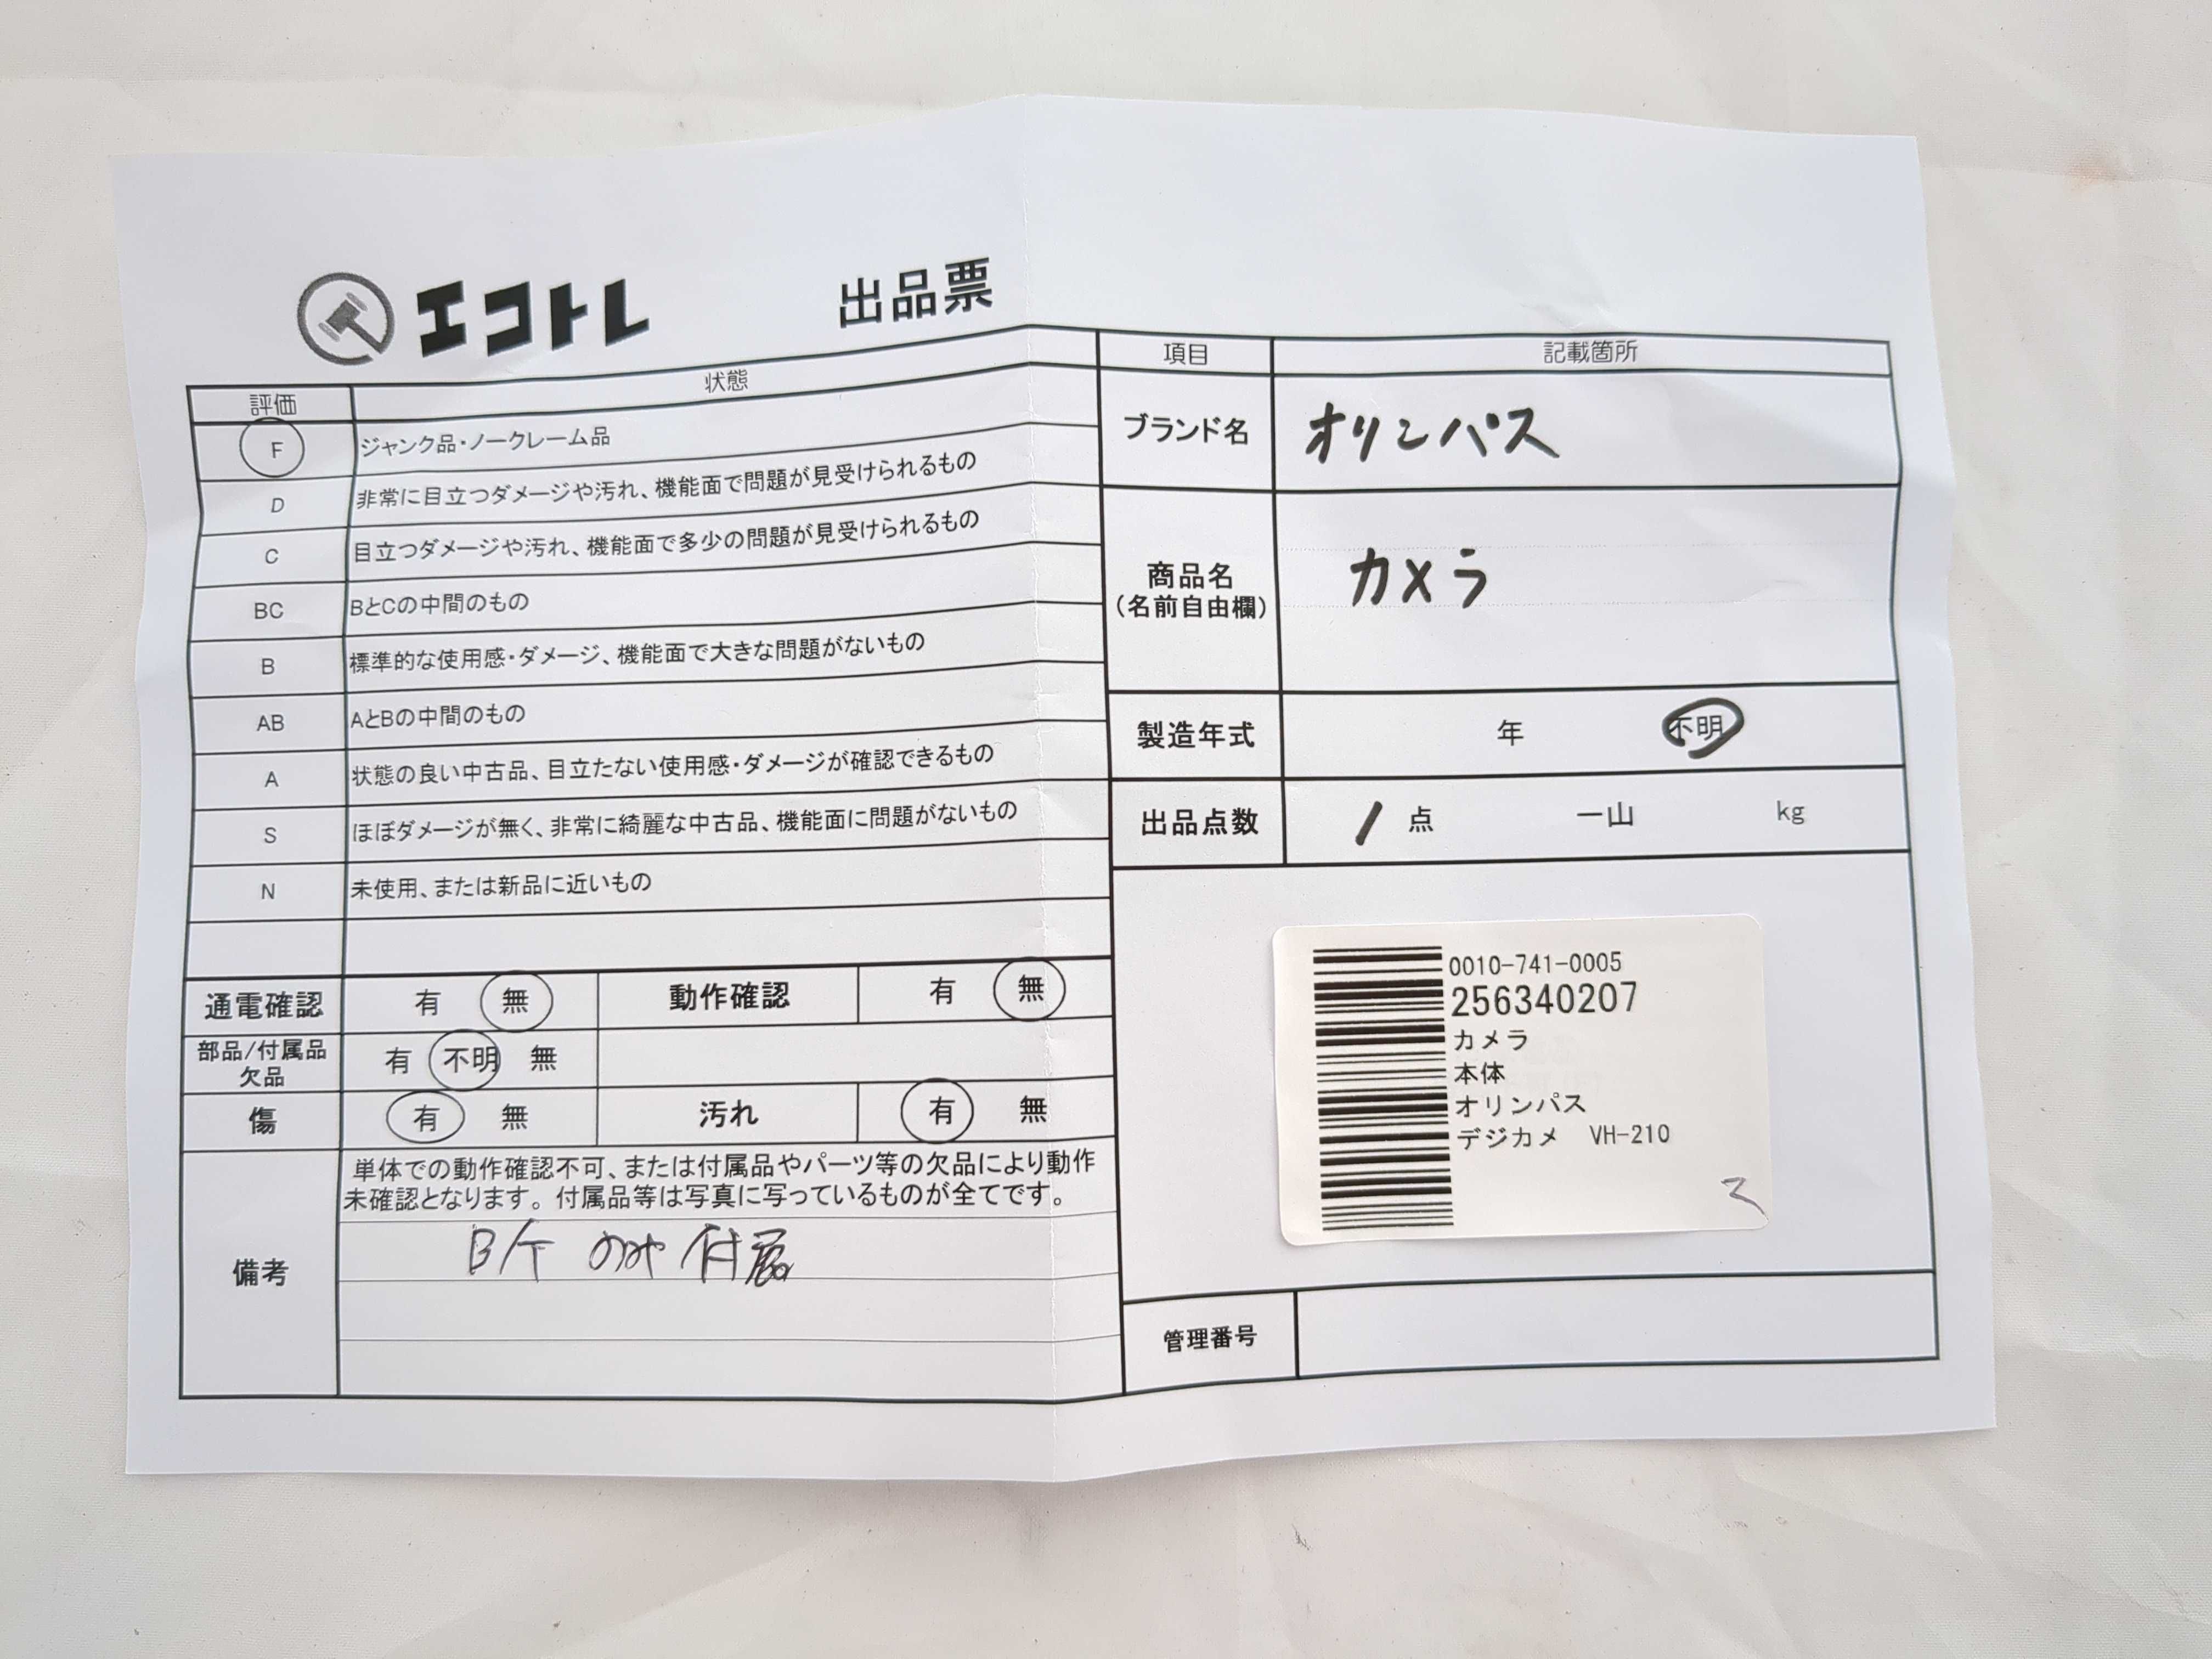 エコトレ 出品票
評価 状態
F ジャンク品・ノークレーム品
D 非常に目立つダメージや汚れ、機能面で問題が見受けられるもの
C 目立つダメージや汚れ、機能面で多少の問題が見受けられるもの
BC BとCの中間のもの
B 標準的な使用感・ダメージ、機能面で大きな問題がないもの
AB AとBの中間のもの
A 状態の良い中古品、目立たない使用感・ダメージが確認できるもの
S ほぼダメージが無く、非常に綺麗な中古品、機能面に問題がないもの
N 未使用、または新品に近いもの
通電確認 有 無 動作確認 有 無
部品/付属品
欠品 有 不明 無
傷 有 無 汚れ 有 無
備考
単体での動作確認不可、または付属品やパーツ等の欠品により動作
未確認となります。付属品等は写真に写っているものが全てです。
B/T のみ 付属
項目 記載箇所
ブランド名 オリンパス
商品名
(名前自由欄) カメラ
製造年式 年 不明
出品点数 1 点 一山 kg
0010-741-0005
256340207
カメラ
本体
オリンパス
デジカメ VH-210
管理番号